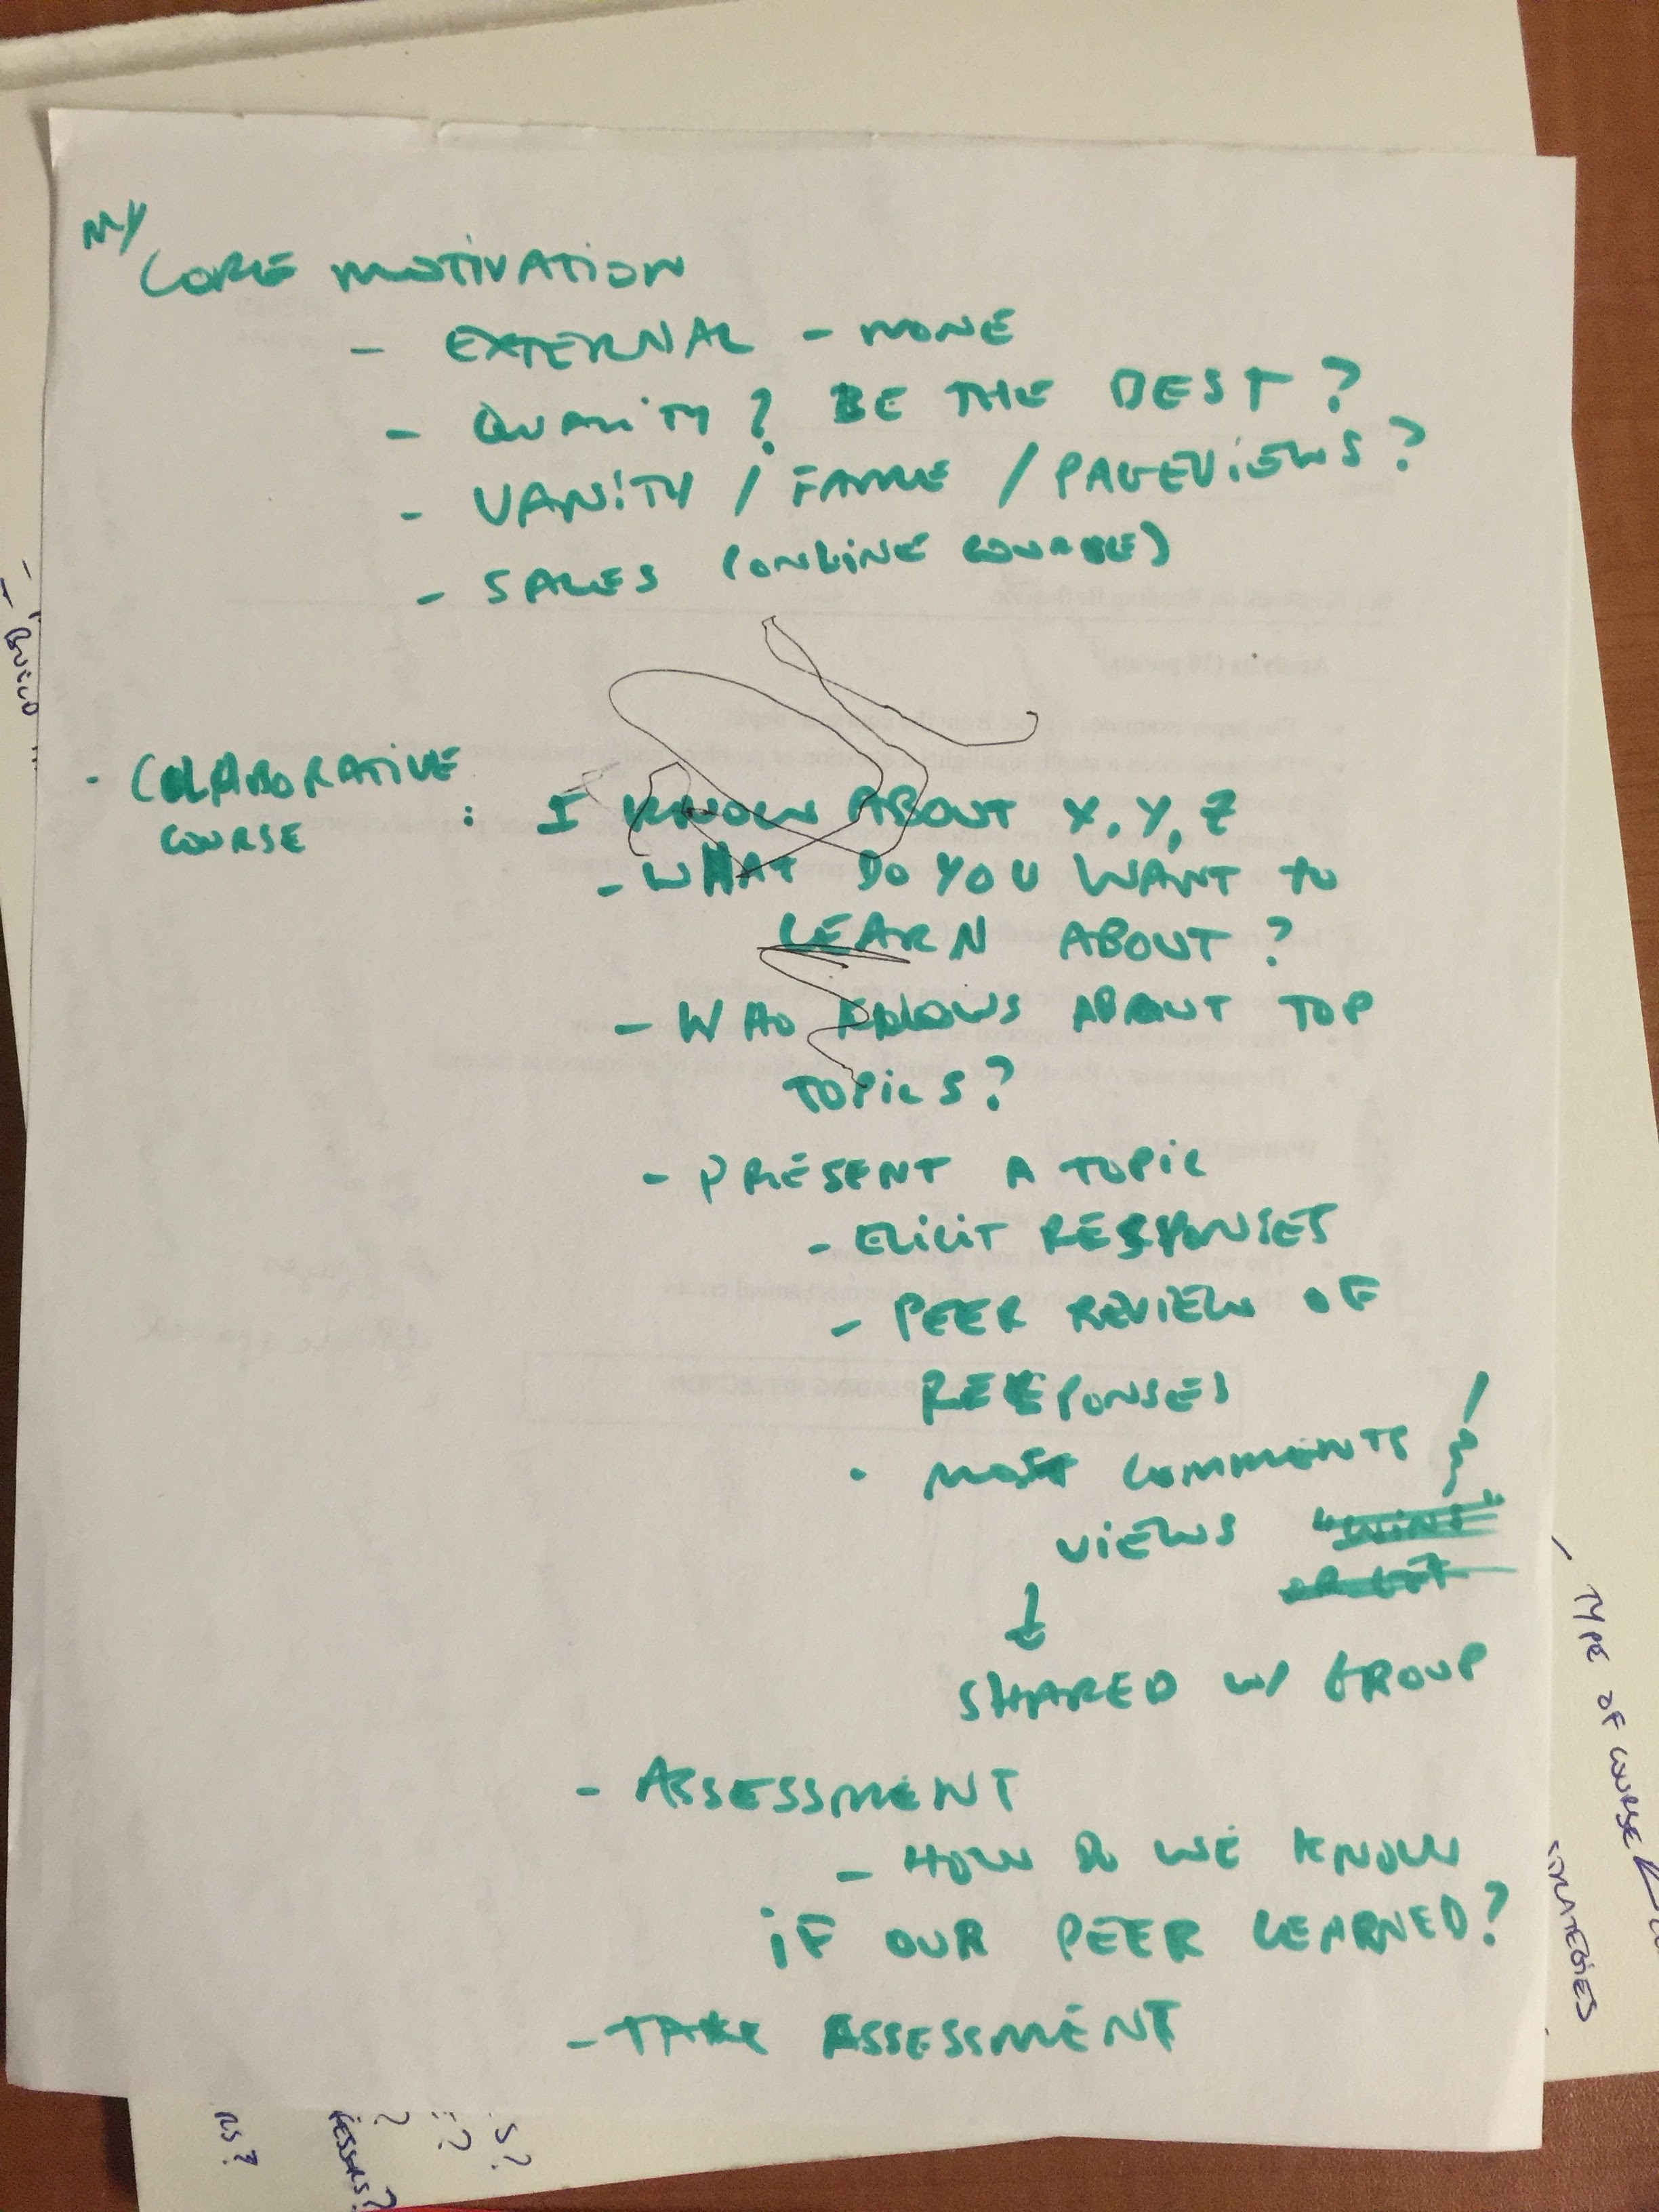 MY
CORE MOTIVATION
- EXTERNAL - NONE
- QUALITY? BE THE BEST?
- VANITY / FAME / PAGEVIEWS?
- SALES (ONLINE COURSE)
- COLLABORATIVE
COURSE : I KNOW ABOUT X, Y, Z
- WHAT DO YOU WANT TO
LEARN ABOUT?
- WHO KNOWS ABOUT TOP
TOPICS?
- PRESENT A TOPIC
- ELICIT RESPONSES
- PEER REVIEW OF
RESPONSES
· MOST COMMENTS /
VIEWS "WINS"
↓
SHARED W/ GROUP
- ASSESSMENT
- HOW DO WE KNOW
IF OUR PEER LEARNED?
- TAKE ASSESSMENT
- BUILD ...
- TYPE OF COURSE
STRATEGIES
RS?
FESSORS?
?
?
S?